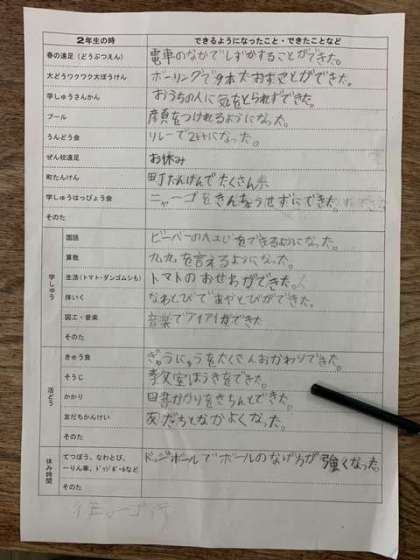 ２年生の時 できるようになったこと・できたことなど
春の遠足（どうぶつえん） 電車のなかでしずかにすることができた。
大どうワクワク大ぼうけん ボーリングで9本たおすことができた。
学しゅうさんかん おうちの人に気をとられずできた。
プール 顔をつけれるようになった。
うんどう会 リレーで2いになった。
ぜん校遠足 お休み
町たんけん 町たんけんでたくさん
学しゅうはっぴょう会 ニャーゴをきんちょうせずにできた。
そのた
学しゅう
国語 ビーバーの をできるようになった。
算数 九九を言えるようになった。
生活（トマト・ダンゴムシも） トマトのおせわができた。
体いく なわとびであやとびができた。
図工・音楽 音楽で ができた
そのた
活どう
きゅう食 ぎゅうにゅうをたくさんおかわりできた。
そうじ 教室ほうきをできた。
かかり 日番かかりをきちんとできた。
友だちかんけい 友だちとなかよくなった。
そのた
休み時間
てつぼう、なわとび、 ドッジボールでボールのなげ方が強くなった。
一りん車、ドッジボールなど
そのた